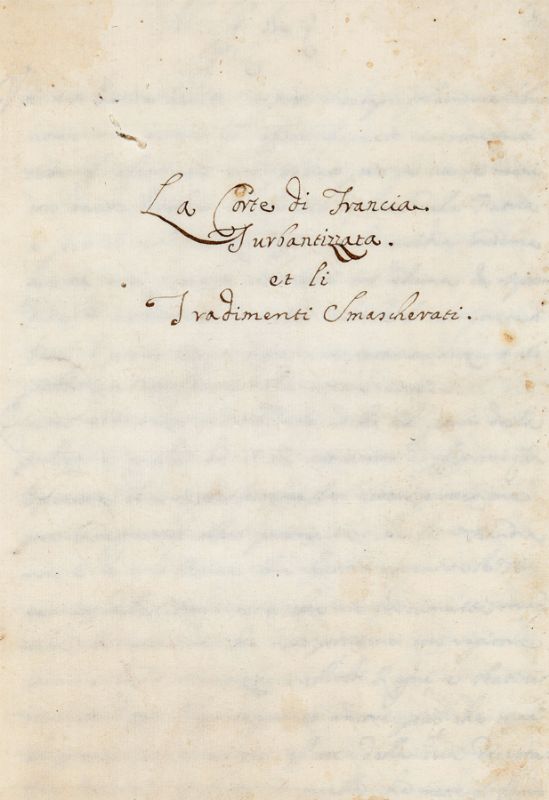 La Corte di Francia.
Turbantizzata.
et li
Tradimenti Smascherati.